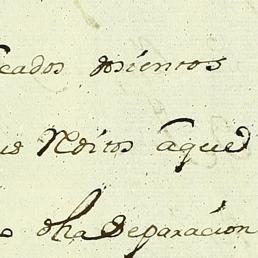 cados dsientos
us Nditos aqued
o dha Separacion